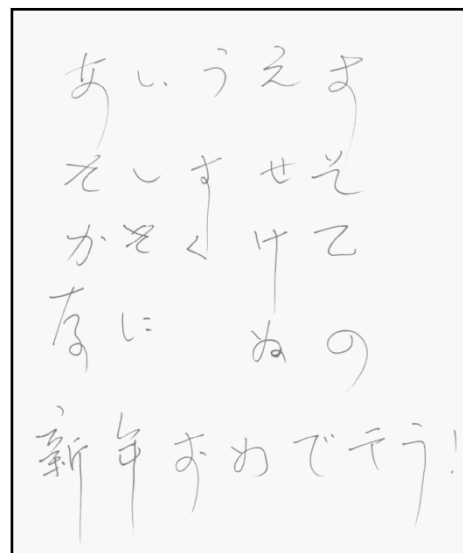 あいうえお
さしすせそ
かきくけこ
な に ぬ の
新年おめでとう!